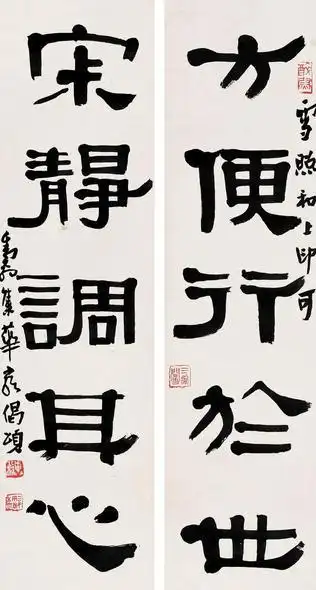 方便行於世
雪照和上印可
宋靜調其心
集華嚴偈頌